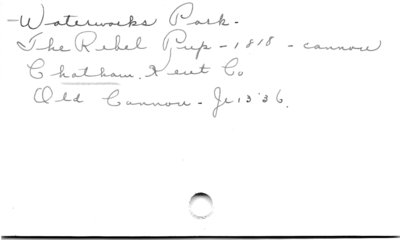 Waterworks Park -
The Rebel Pup - 1818 - cannon
Chatham, Kent Co
Old Cannon - Je 13 '36.